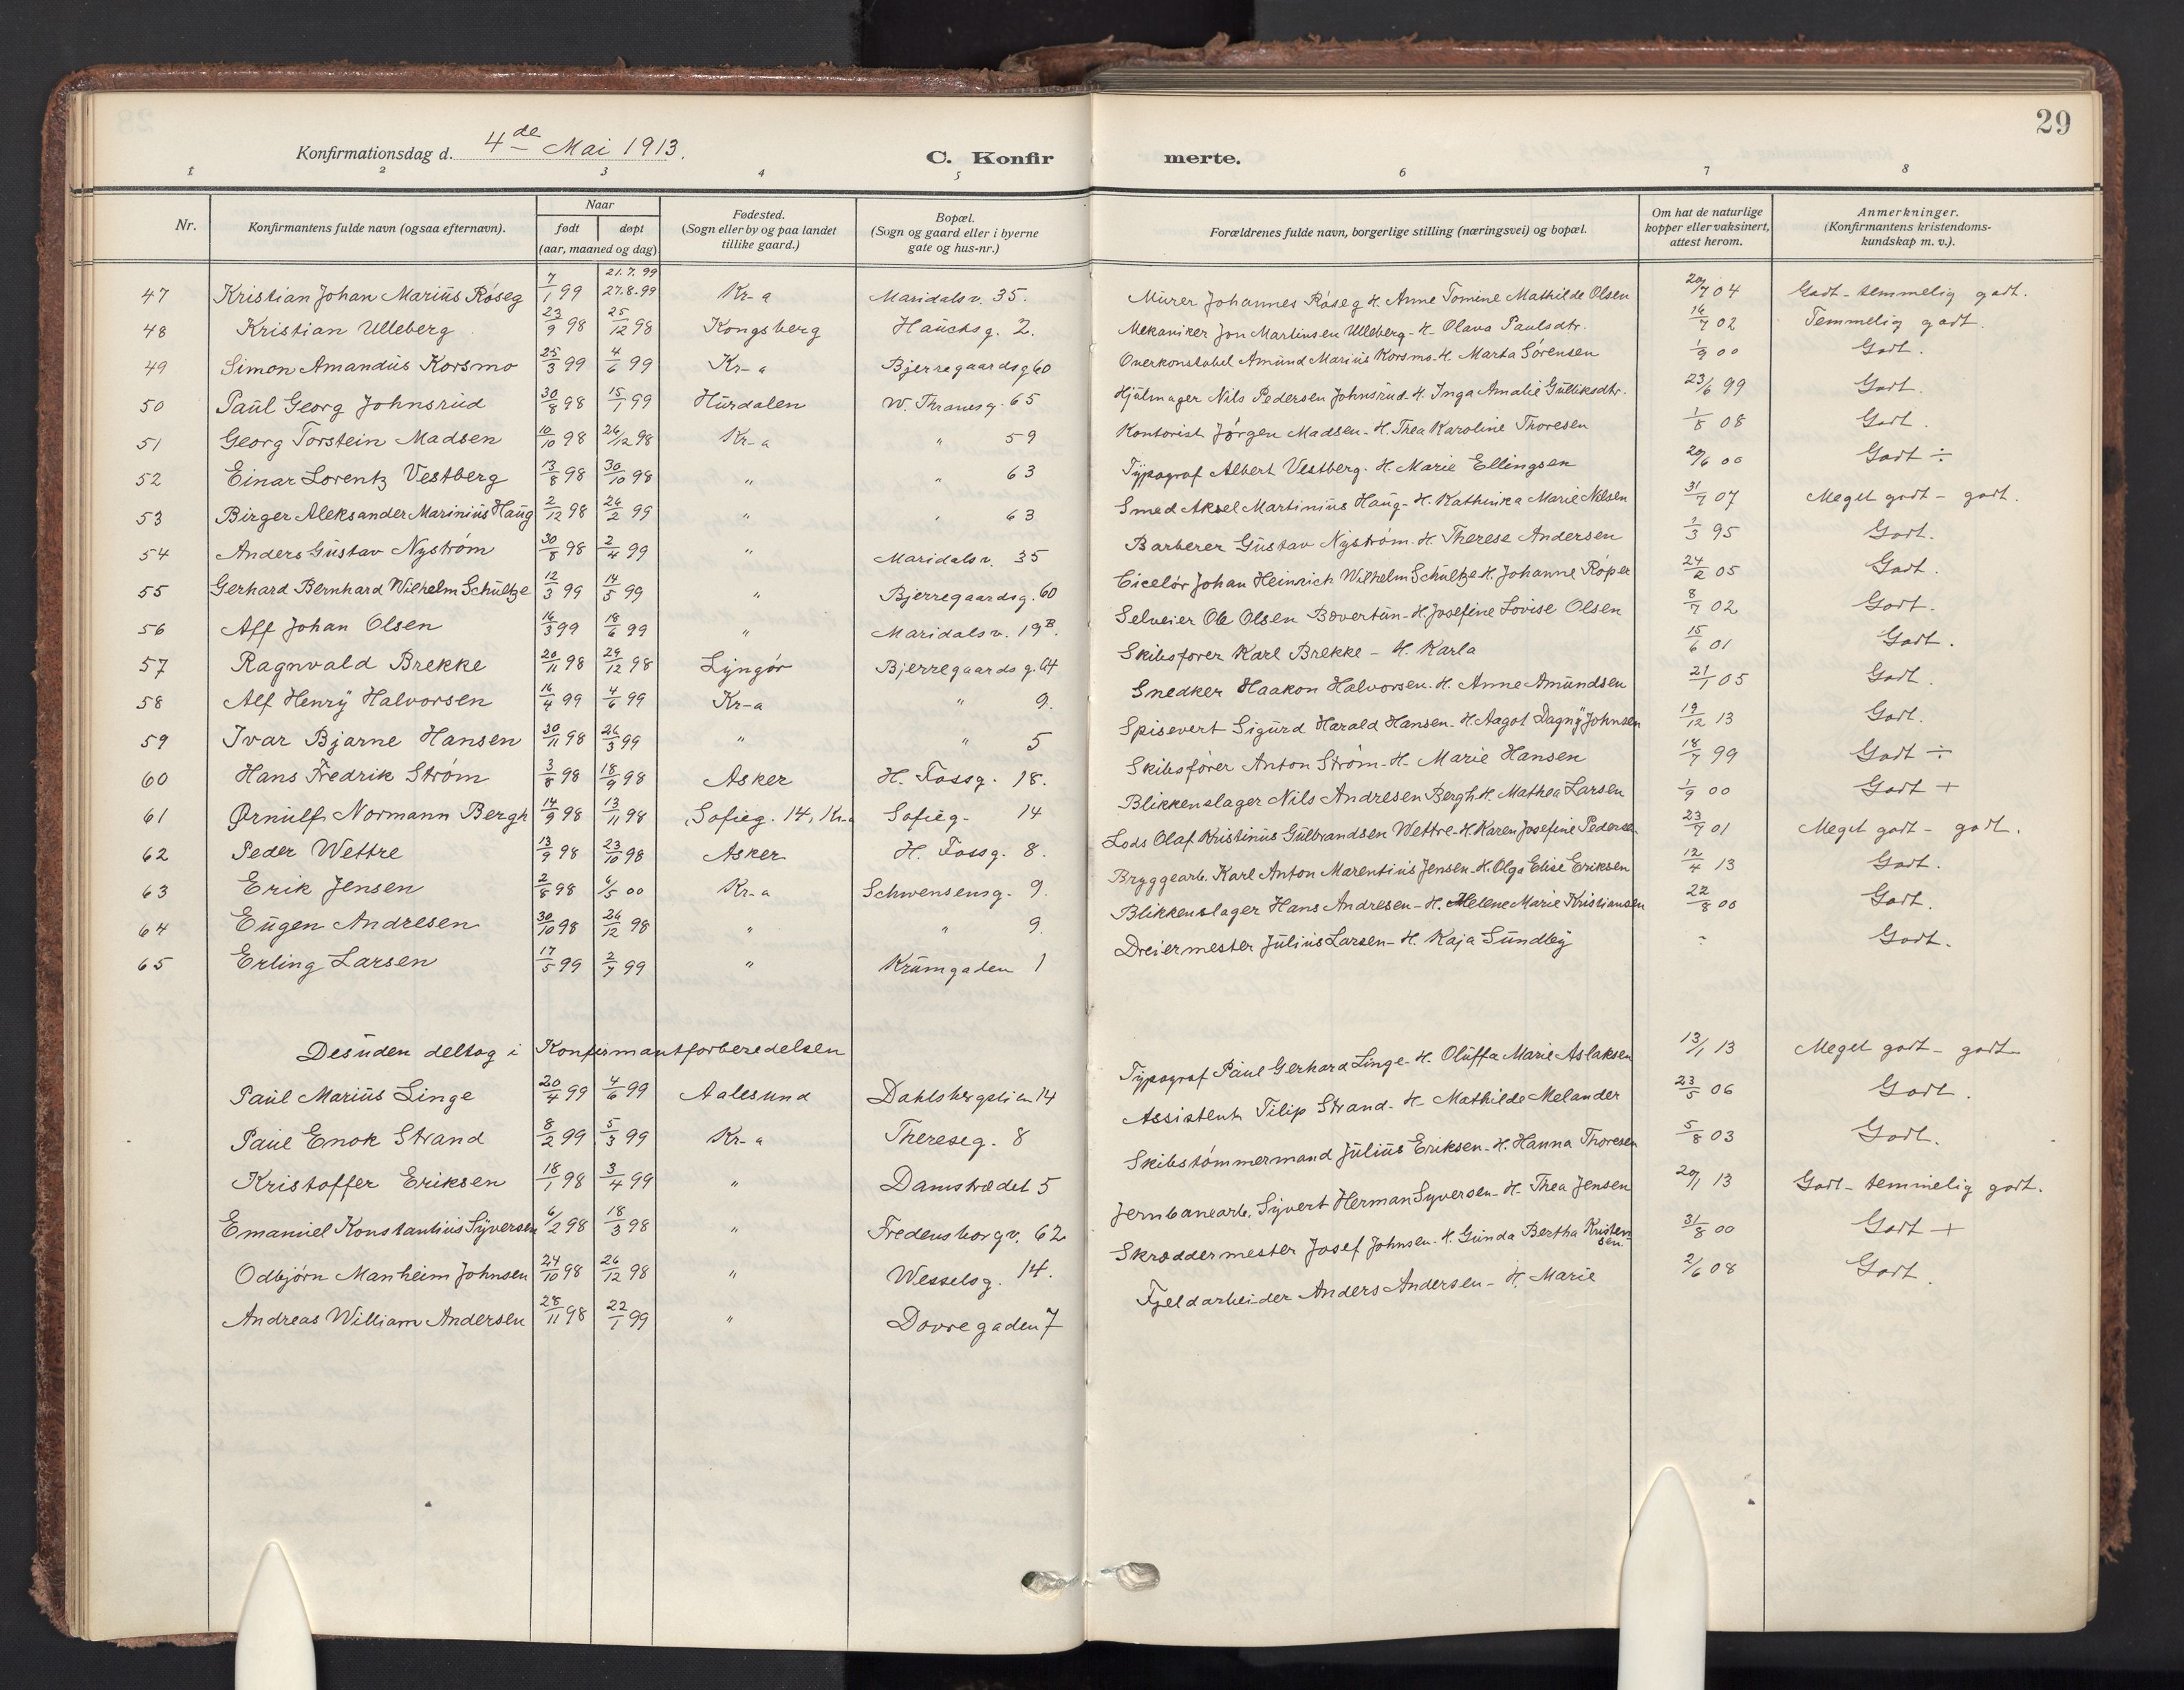 29
Konfirmationsdag d. 4de Mai 1913.
C. Konfirmerte.
1 2 3 4 5 6 7 8
Nr. | Konfirmantens fulde navn (ogsaa efternavn). | Naar født | døpt (aar, maaned og dag) | Fødested. (Sogn eller by og paa landet tillike gaard.) | Bopæl. (Sogn og gaard eller i byerne gate og hus-nr.) | Forældrenes fulde navn, borgerlige stilling (næringsvei) og bopæl. | Om hat de naturlige kopper eller vaksinert, attest herom. | Anmerkninger. (Konfirmantens kristendoms-kundskap m. v.).
47 Kristian Johan Marius Røseg 7/1 99 21.7.99 27.8.99 Kr-a Maridalsv. 35. Murer Johannes Røseg H. Anne Tomine Mathilde Olsen 20/7 04 Godt - temmelig godt.
48 Kristian Ulleberg 23/9 98 25/12 98 Kongsberg Hauchsg. 2. Mekaniker Jon Martinsen Ulleberg - H. Olava Paulsdtr. 16/7 02 Temmelig godt.
49 Simon Amandus Korsmo 25/3 99 4/6 99 Kr-a Bjerregaardsg 60 Overkonstabel Amund Marius Korsmo - H. Marta Sørensen 1/9 00 Godt.
50 Paul Georg Johnsrud 30/8 98 15/1 99 Hurdalen W. Thranesg. 65 Hjulmager Nils Pedersen Johnsrud. H. Inga Amalie Gulliksdtr. 23/6 99 Godt.
51 Georg Torstein Madsen 10/10 98 26/12 98 Kr-a " 59 Kontorist Jørgen Madsen - H. Thea Karoline Thoresen 1/8 08 Godt.
52 Einar Lorentz Vestberg 13/8 98 30/10 98 " " 63 Typograf Albert Vestberg. H. Marie Ellingsen 20/6 00 Godt ÷
53 Birger Aleksander Marinius Haug 2/12 98 26/2 99 " " 63 Smed Aksel Martinius Haug - H. Kathinka Marie Nilsen 31/7 07 Meget godt - godt.
54 Anders Gustav Nystrøm 30/8 98 2/4 99 " Maridalsv. 35 Barberer Gustav Nystrøm. H. Therese Andersen 1/3 95 Godt.
55 Gerhard Bernhard Wilhelm Schultze 12/3 99 14/5 99 " Bjerregaardsg. 60 Ciselør Johan Heinrich Wilhelm Schultze H. Johanne Røper 24/2 05 Godt.
56 Alf Johan Olsen 16/3 99 18/6 99 " Maridalsv. 19B. Selveier Ole Olsen Bøvertun - H. Josefine Lovise Olsen 8/7 02 Godt.
57 Ragnvald Brekke 20/11 98 29/12 98 Lyngør Bjerregaardsg. 64 Skibsfører Karl Brekke - H. Karla 15/6 01 Godt.
58 Alf Henry Halvorsen 16/4 99 4/6 99 Kr-a " 9. Snedker Haakon Halvorsen. H. Anne Amundsen 21/1 05 Godt.
59 Ivar Bjarne Hansen 30/11 98 26/3 99 " " 5 Spisevert Sigurd Harald Hansen - H. Aagot Dagny Johnsen 19/12 13 Godt.
60 Hans Fredrik Strøm 3/8 98 18/9 98 Asker H. Fossg. 18. Skibsfører Anton Strøm - H. Marie Hansen 18/7 99 Godt ÷
61 Ørnulf Normann Bergh 14/9 98 13/11 98 Sofieg. 14, Kr-a Sofieg. 14 Blikkenslager Nils Andresen Bergh. H. Mathea Larsen 1/9 00 Godt +
62 Peder Wettre 13/9 98 23/10 98 Asker H. Fossg. 8. Lods Olaf Kristinus Gulbrandsen Wettre - H. Karen Josefine Pedersen 23/7 01 Meget godt - godt.
63 Erik Jensen 2/8 98 6/5 00 Kr-a Schwensensg. 9. Bryggearb. Karl Anton Marentius Jensen - H. Olga Elise Eriksen 12/4 13 Godt.
64 Eugen Andresen 30/10 98 26/12 98 " " 9. Blikkenslager Hans Andresen - H. Helene Marie Kristiansen 22/8 00 Godt.
65 Erling Larsen 17/5 99 2/7 99 " Krumgaden 1 Dreiermester Julius Larsen - H. Kaja Sundby ÷ Godt.
Desuden deltog i Konfirmantforberedelsen
Paul Marius Linge 20/4 99 4/6 99 Aalesund Dahlsbergstien 14 Typograf Paul Gerhard Linge - H. Oluffa Marie Aslaksen 13/1 13 Meget godt - godt
Paul Enok Strand 8/2 99 5/3 99 Kr-a Thereseg. 8 Assistent Filip Strand - H. Mathilde Melander 23/5 06 Godt.
Kristoffer Eriksen 18/1 98 3/4 99 " Damstrædet 5 Skibstømmermand Julius Eriksen - H. Hanna Thoresen 5/8 03 Godt.
Emanuel Konstantius Syversen 6/2 98 18/3 98 " Fredensborgv. 62 Jernbanearb. Syvert Herman Syversen - H. Thea Jensen 20/1 13 Godt - temmelig godt.
Odbjørn Manheim Johnsen 24/10 98 26/12 98 " Wesselsg. 14. Skræddermester Josef Johnsen. H. Gunda Bertha Kristensen 31/8 00 Godt +
Andreas William Andersen 28/11 98 22/1 99 " Dovregaden 7 Fjeldarbeider Anders Andersen - H. Marie 2/6 08 Godt.